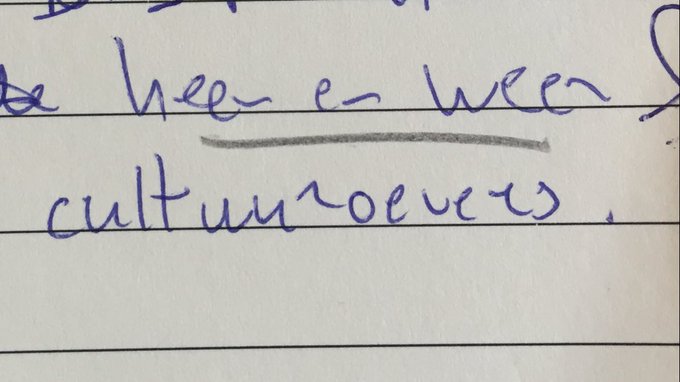 heen en weer
cultuuroevers.